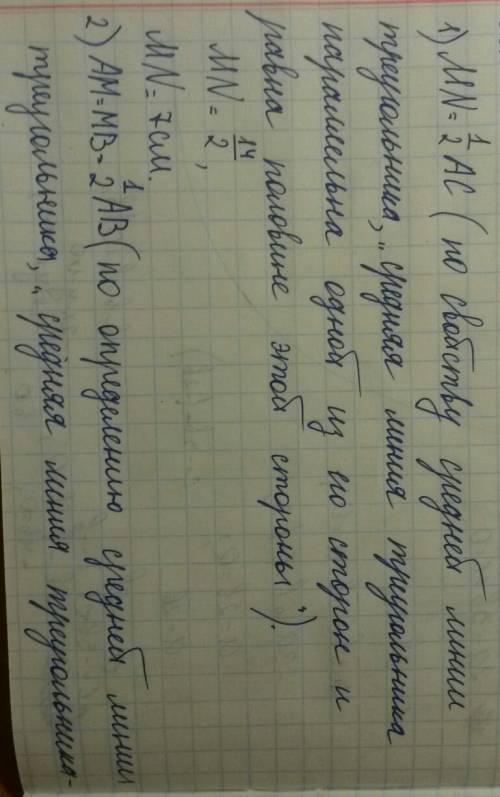 1) MN = 1/2 AC (по свойству средней линии
треугольника, „средняя линия треугольника
параллельна одной из его сторон и
равна половине этой стороны").
MN = 14/2,
MN = 7см.
2) AM = MB = 1/2 AB (по определению средней линии
треугольника, „средняя линия треугольника-